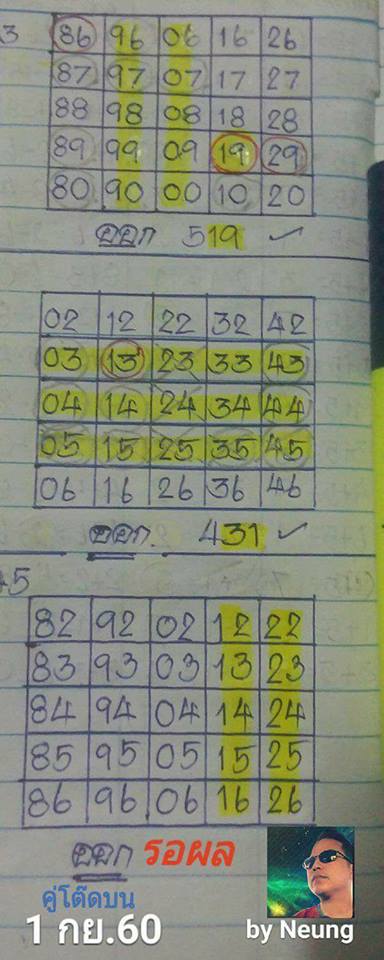 3
86 96 06 16 26
87 97 07 17 27
88 98 08 18 28
89 99 09 19 29
80 90 00 10 20
ออก 519 ✓
02 12 22 32 42
03 13 23 33 43
04 14 24 34 44
05 15 25 35 45
06 16 26 36 46
ออก. 431 ✓
45
82 92 02 12 22
83 93 03 13 23
84 94 04 14 24
85 95 05 15 25
86 96 06 16 26
ออก รอผล
คู่โต๊ดบน
1 กย.60 by Neung